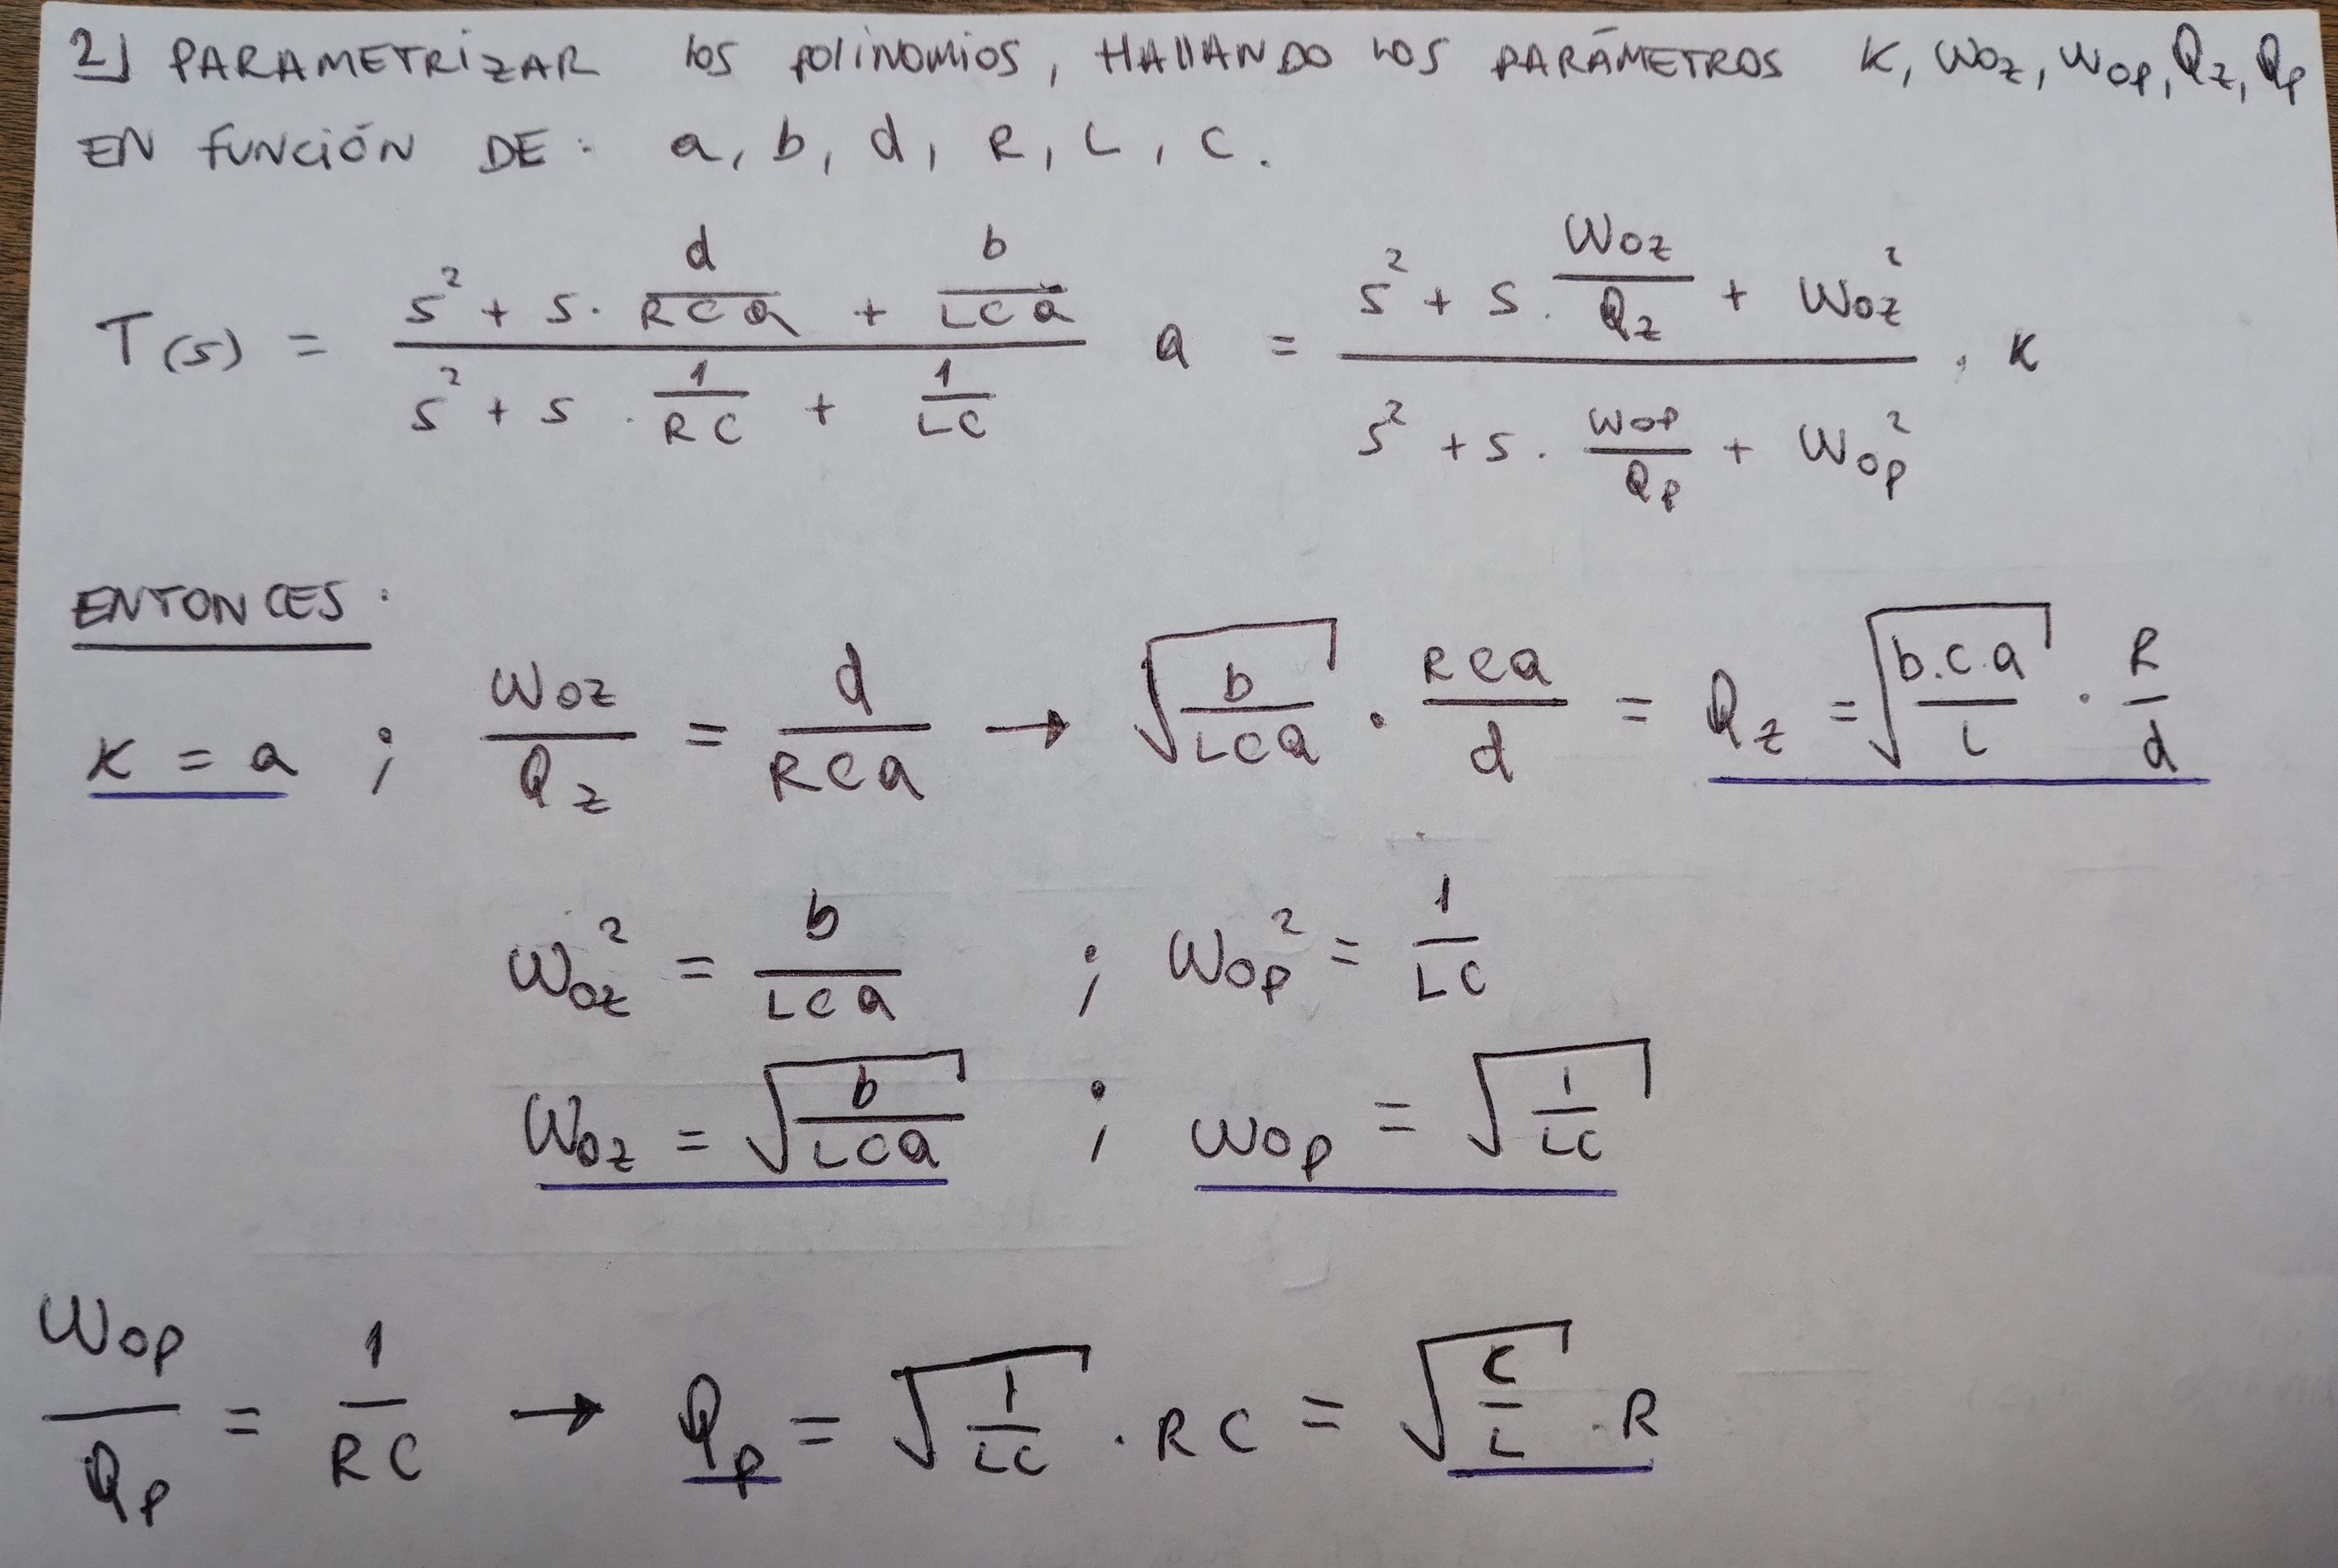 2) PARAMETRIZAR los polinomios, HALLANDO LOS PARÁMETROS K, Woz, Wop, Qz, Qp
EN FUNCIÓN DE: a, b, d, R, L, C.
T(s) = (s² + s. d/RCa + b/LCa) / (s² + s. 1/RC + 1/LC) a = (s² + s. Woz/Qz + Woz²) / (s² + s. Wop/Qp + Wop²) . K
ENTONCES:
K = a ; Woz/Qz = d/RCa → √(b/LCa) . RCa/d = Qz = √(b.C.a/L) . R/d
Woz² = b/LCa ; Wop² = 1/LC
Woz = √(b/LCa) ; Wop = √(1/LC)
Wop/Qp = 1/RC → Qp = √(1/LC) . RC = √(C/L) . R